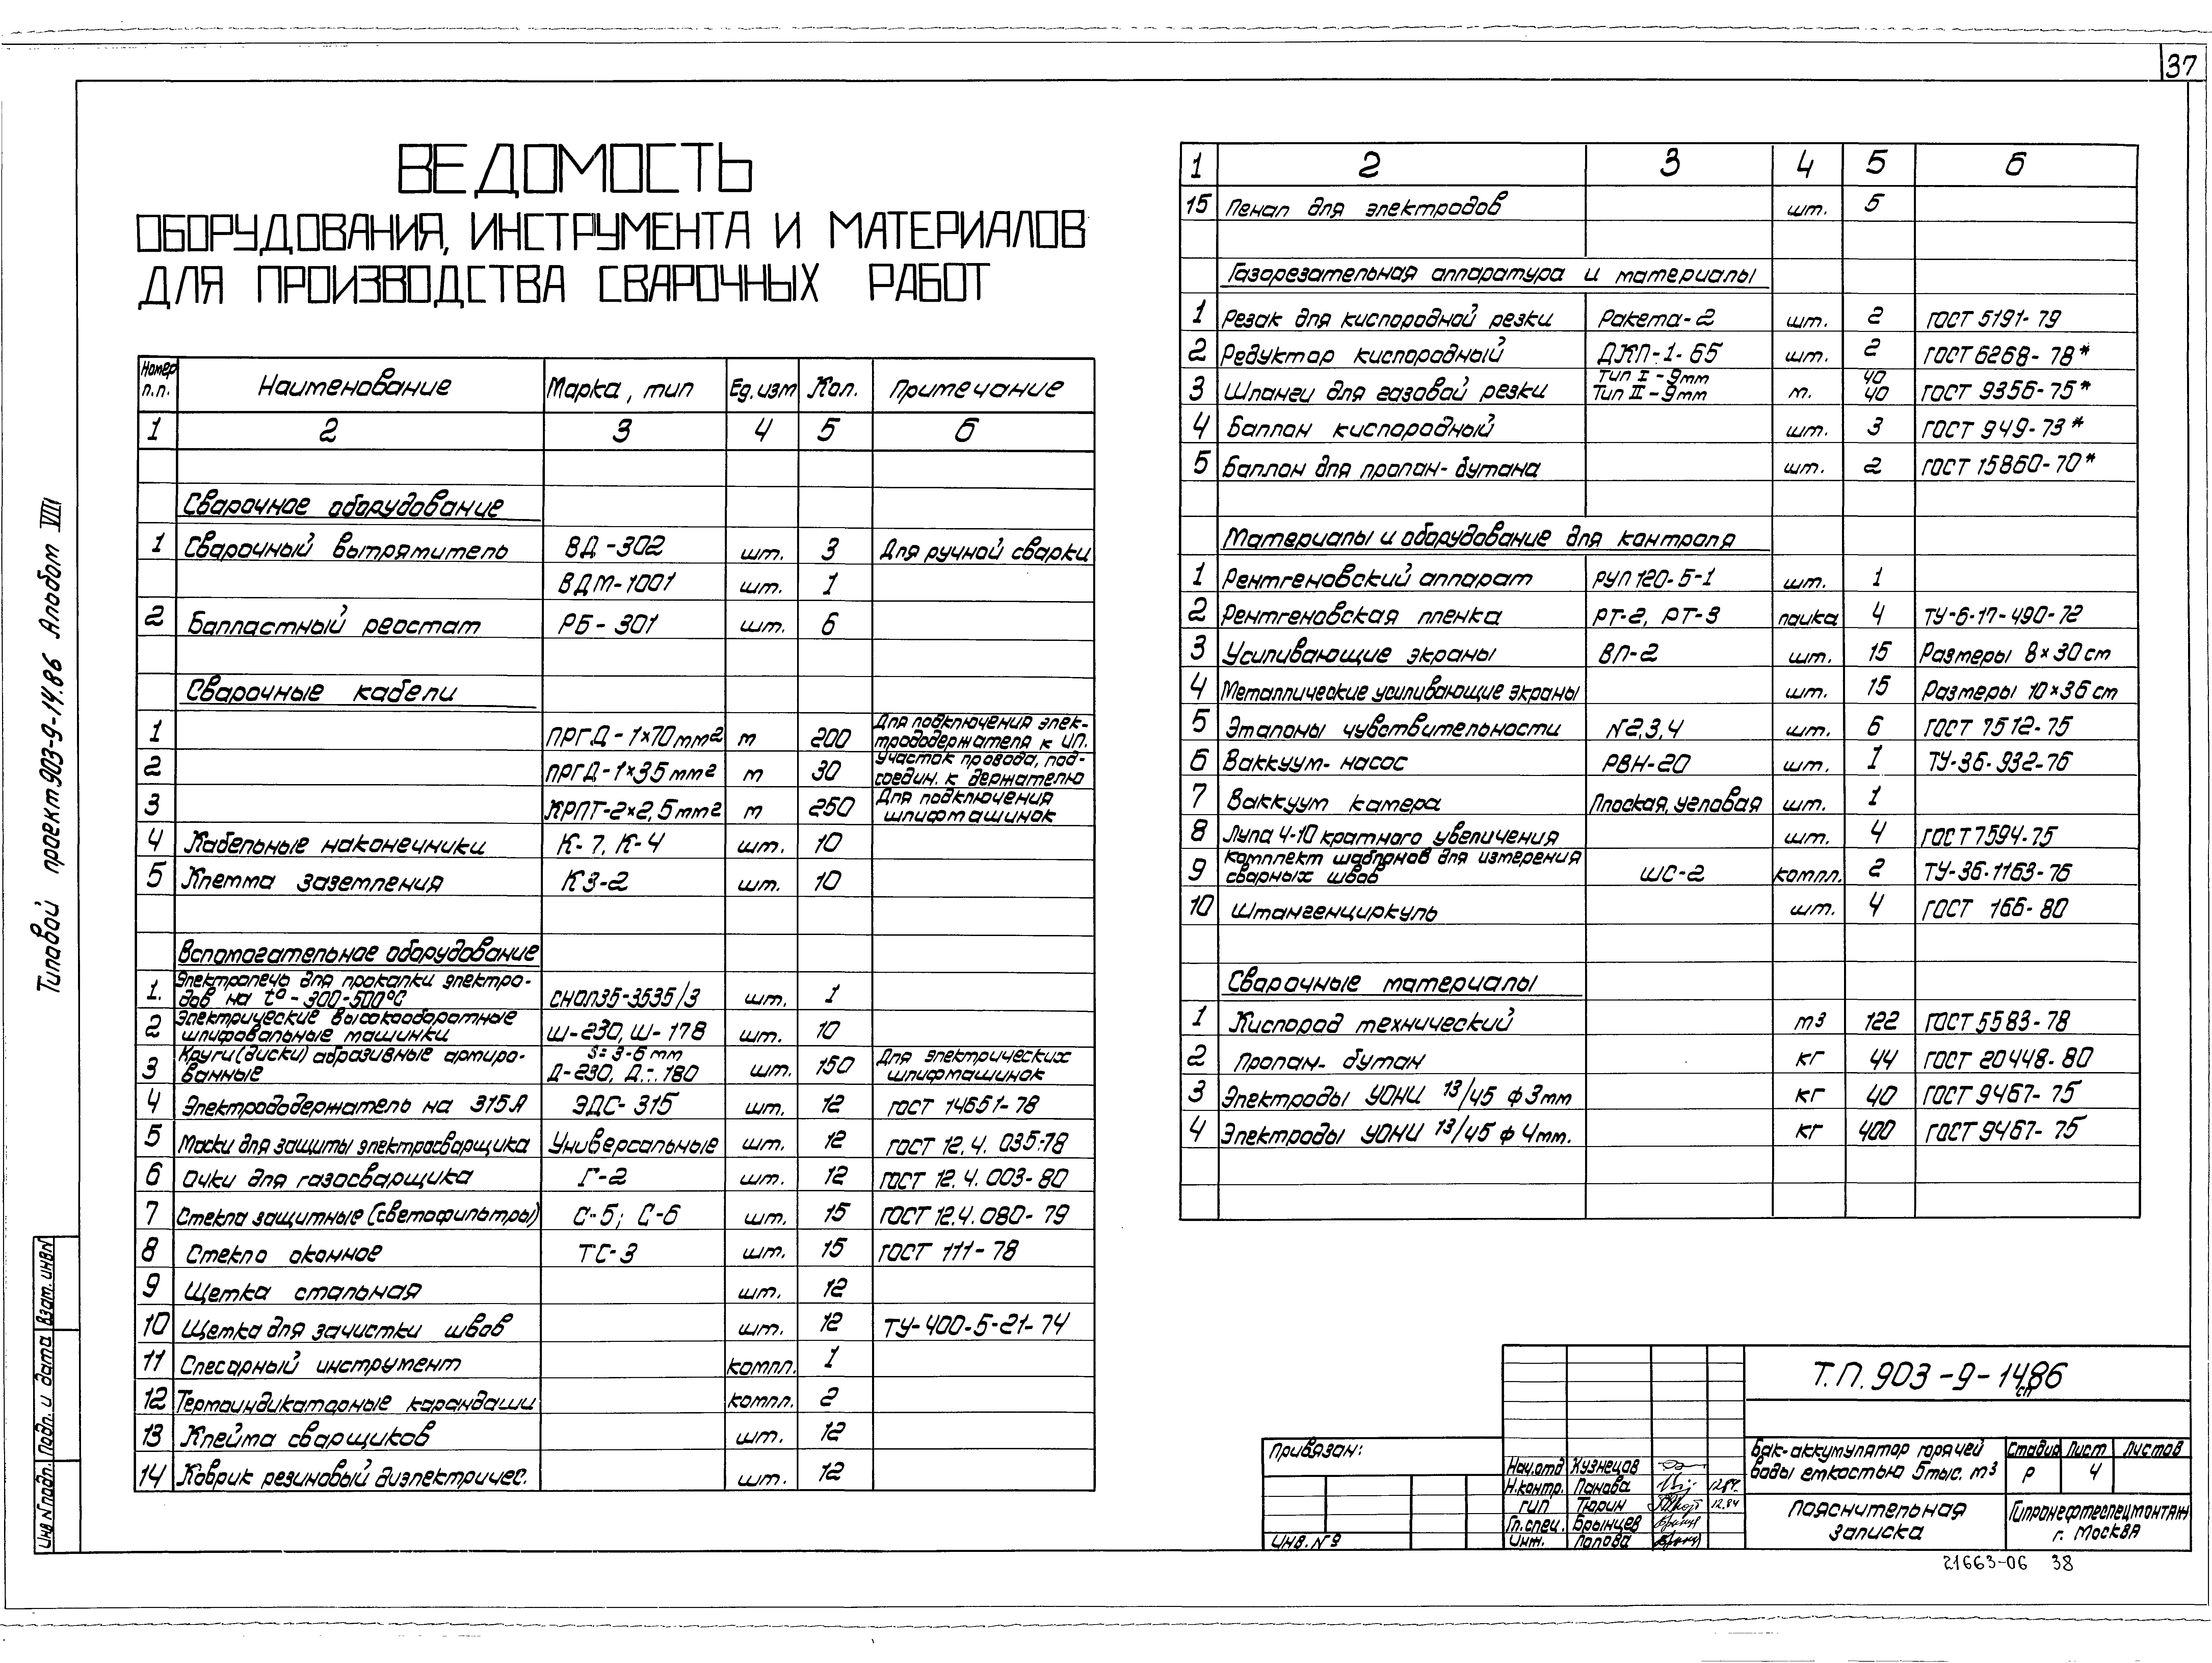 37
ВЕДОМОСТЬ
ОБОРУДОВАНИЯ, ИНСТРУМЕНТА И МАТЕРИАЛОВ
ДЛЯ ПРОИЗВОДСТВА СВАРОЧНЫХ РАБОТ
Номер п.п. Наименование Марка, тип Ед.изм Кол. Примечание
1 2 3 4 5 6
Сварочное оборудование
1 Сварочный выпрямитель ВД-302 шт. 3 Для ручной сварки
ВДМ-1001 шт. 1
2 Балластный реостат РБ-301 шт. 6
Сварочные кабели
1 ПРГД-1×70mm2 m 200 Для подключения элек-
трододержателя к ИП.
2 ПРГД-1×35mm2 m 30 Участок провода, под-
соедин. к держателю
3 КРПТ-2×2,5mm2 m 250 Для подключения
шлифмашинок
4 Кабельные наконечники К-7, К-4 шт. 10
5 Клемма заземления КЗ-2 шт. 10
Вспомогательное оборудование
1. Электропечь для прокалки электро-
дов на t°-300-500°С СНОЛ35-3535/3 шт. 1
2 Электрические высокооборотные
шлифовальные машинки Ш-230, Ш-178 шт. 10
3 Круги(диски) абразивные армиро-
ванные S=3-6mm
Д-230, Д-180 шт. 150 Для электрических
шлифмашинок
4 Электрододержатель на 315А ЭДС-315 шт. 12 ГОСТ 14651-78
5 Маски для защиты электросварщика Универсальные шт. 12 ГОСТ 12.4.035-78
6 Очки для газосварщика Г-2 шт. 12 ГОСТ 12.4.003-80
7 Стекла защитные (светофильтры) С-5; С-6 шт. 15 ГОСТ 12.4.080-79
8 Стекло оконное ТС-3 шт. 15 ГОСТ 111-78
9 Щетка стальная шт. 12
10 Щетка для зачистки швов шт. 12 ТУ-400-5-21-74
11 Слесарный инструмент компл. 1
12 Термоиндикаторные карандаши компл. 2
13 Клейма сварщиков шт. 12
14 Коврик резиновый диэлектричес. шт. 12
1 2 3 4 5 6
15 Пенал для электродов шт. 5
Газорезательная аппаратура и материалы
1 Резак для кислородной резки Ракета-2 шт. 2 ГОСТ 5191-79
2 Редуктор кислородный ДКП-1-65 шт. 2 ГОСТ 6268-78*
3 Шланги для газовой резки Тип I-9mm
Тип II-9mm м. 40
40 ГОСТ 9356-75*
4 Баллон кислородный шт. 3 ГОСТ 949-73*
5 Баллон для пропан-бутана шт. 2 ГОСТ 15860-70*
Материалы и оборудование для контроля
1 Рентгеновский аппарат РУП 120-5-1 шт. 1
2 Рентгеновская пленка РТ-2, РТ-3 пачка 4 ТУ-6-17-490-72
3 Усиливающие экраны ВП-2 шт. 15 Размеры 8×30cm
4 Металлические усиливающие экраны шт. 15 Размеры 10×36cm
5 Эталоны чувствительности N2,3,4 шт. 6 ГОСТ 7512-75
6 Ваккуум-насос РВН-20 шт. 1 ТУ-36-932-76
7 Ваккуум камера Плоская, угловая шт. 1
8 Лупа 4-10 кратного увеличения шт. 4 ГОСТ 7594-75
9 Комплект шаблонов для измерения
сварных швов ШС-2 компл. 2 ТУ-36-1163-76
10 Штангенциркуль шт. 4 ГОСТ 166-80
Сварочные материалы
1 Кислород технический m3 122 ГОСТ 5583-78
2 Пропан-бутан кг 44 ГОСТ 20448-80
3 Электроды УОНИ 13/45 ф3mm кг 40 ГОСТ 9467-75
4 Электроды УОНИ 13/45 ф4mm. кг 400 ГОСТ 9467-75
Типовой проект 903-9-14.86 Альбом VIII
Инв N подл. Подп. и дата Взам. инвN
Привязан:
ИНВ. №
Нач.отд Кузнецов
Н.контр. Панова 12.84.
ГИП Тюрин 12.84
Гл.спец. Брынцев
Инж. Попова
Т.П. 903-9-1486
сп
Бак-аккумулятор горячей
воды емкостью 5тыс. m3
Стадия Лист Листов
Р 4
Пояснительная
записка
Гипронефтеспецмонтаж
г. Москва
21663-06 38